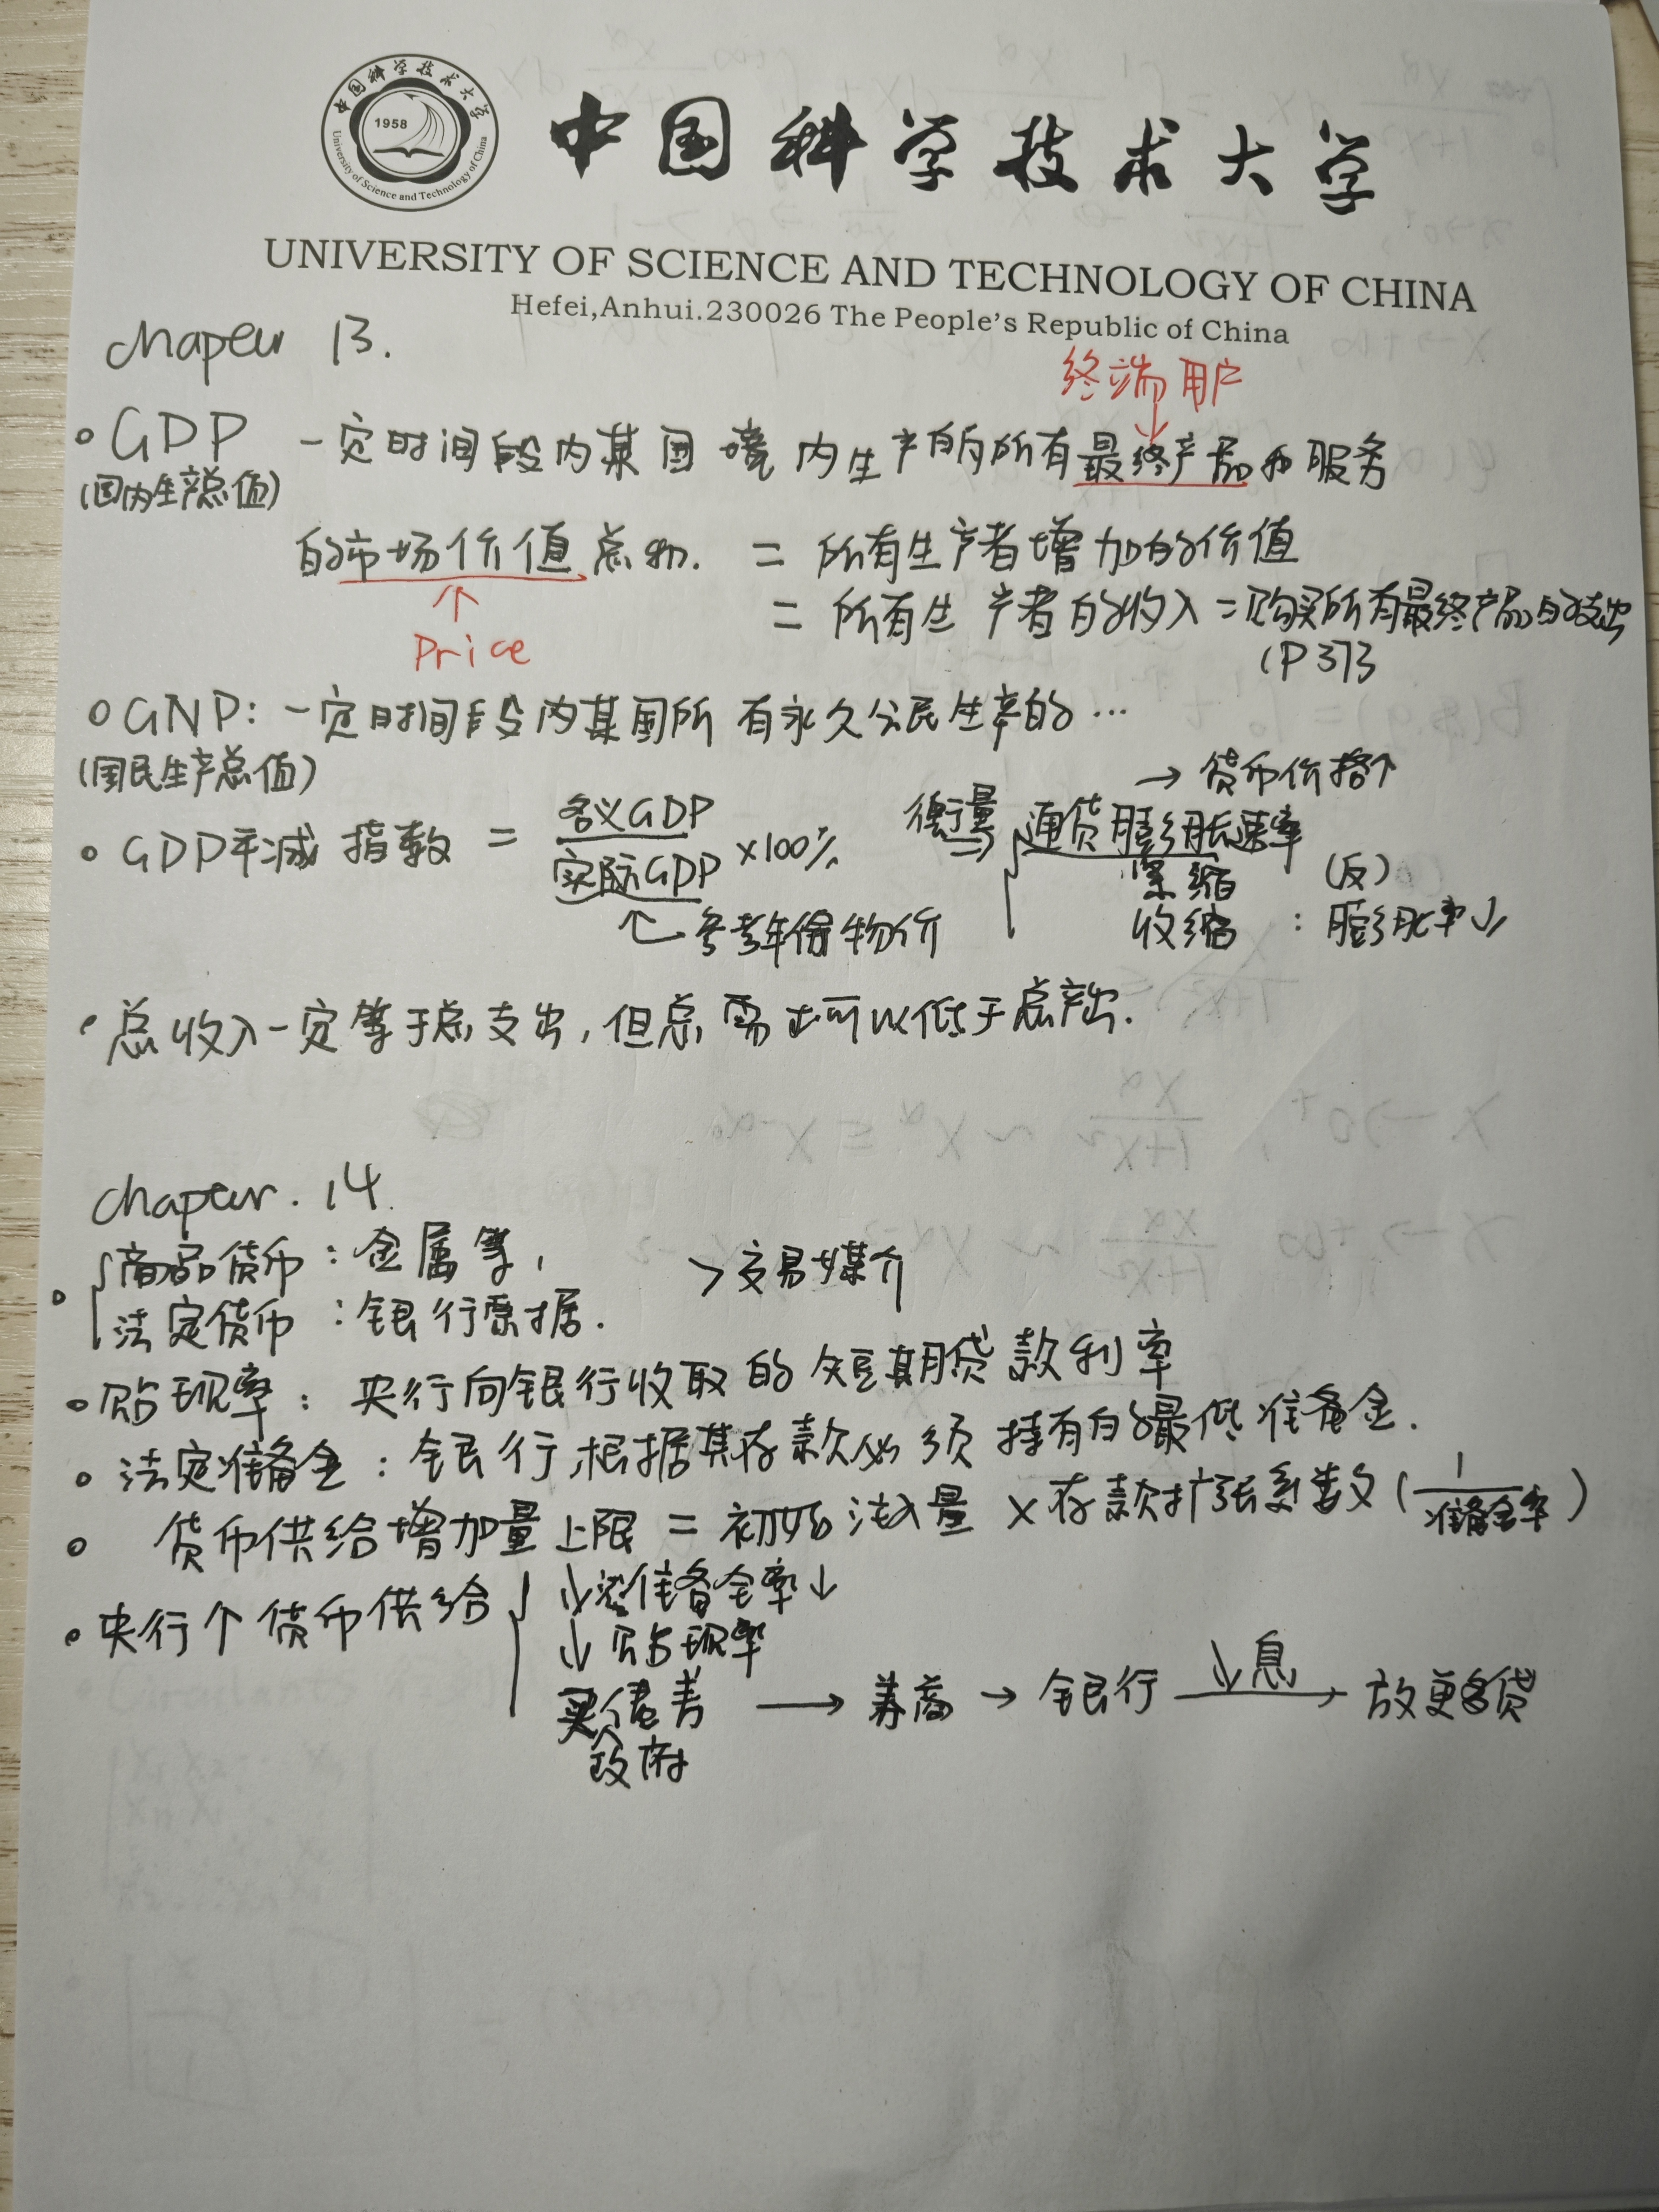 中国科学技术大学
1958
University of Science and Technology of China
中国科学技术大学
UNIVERSITY OF SCIENCE AND TECHNOLOGY OF CHINA
Hefei,Anhui.230026 The People's Republic of China
chapeur 13.
终端用户
↓
GDP 一定时间段内某国境内生产的所有最终产品和服务
(国内生产总值)
的市场价值总和. = 所有生产者增加的价值
↑
Price
= 所有生产者的收入 = 购买所有最终产品的支出
(P373
GNP: 一定时间段内某国所有永久公民生产的…
(国民生产总值)
→ 货币价格↑
GDP平减指数 = 名义GDP / 实际GDP ×100% 衡量 通货膨胀速率
紧缩 (反)
参考年份物价 收缩 : 膨胀率↓
总收入一定等于总支出, 但总需求可以低于总产出.
chapeur. 14.
商品货币 : 金属等,
> 交易媒介
法定货币 : 银行票据.
贴现率 : 央行向银行收取的短期贷款利率
法定准备金 : 银行根据其存款必须持有的最低准备金.
货币供给增加量上限 = 初始注入量 × 存款扩张系数 (1/准备金率)
央行↑货币供给
↓准备金率↓
↓贴现率
买债券 → 券商 → 银行 ↓息 → 放更多贷
政府